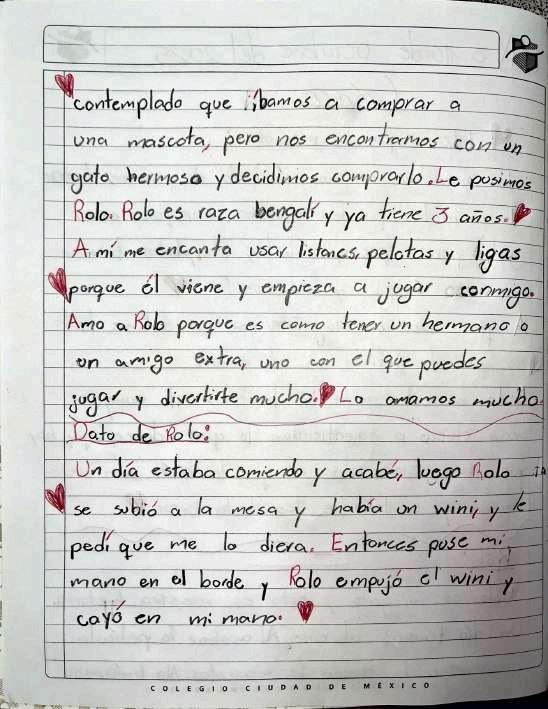 contemplado que íbamos a comprar a
una mascota, pero nos encontramos con un
gato hermoso y decidimos comprarlo. Le pusimos
Rolo. Rolo es raza bengalí y ya tiene 3 años.
A mí me encanta usar listones, pelotas y ligas
porque él viene y empieza a jugar conmigo.
Amo a Rolo porque es como tener un hermano o
un amigo extra, uno con el que puedes
jugar y divertirte mucho. Lo amamos mucho.
Dato de Rolo:
Un día estaba comiendo y acabé, luego Rolo
se subió a la mesa y había un wini, y le
pedí que me lo diera. Entonces puse mi
mano en el borde y Rolo empujó el wini y
cayó en mi mano.
COLEGIO CIUDAD DE MÉXICO